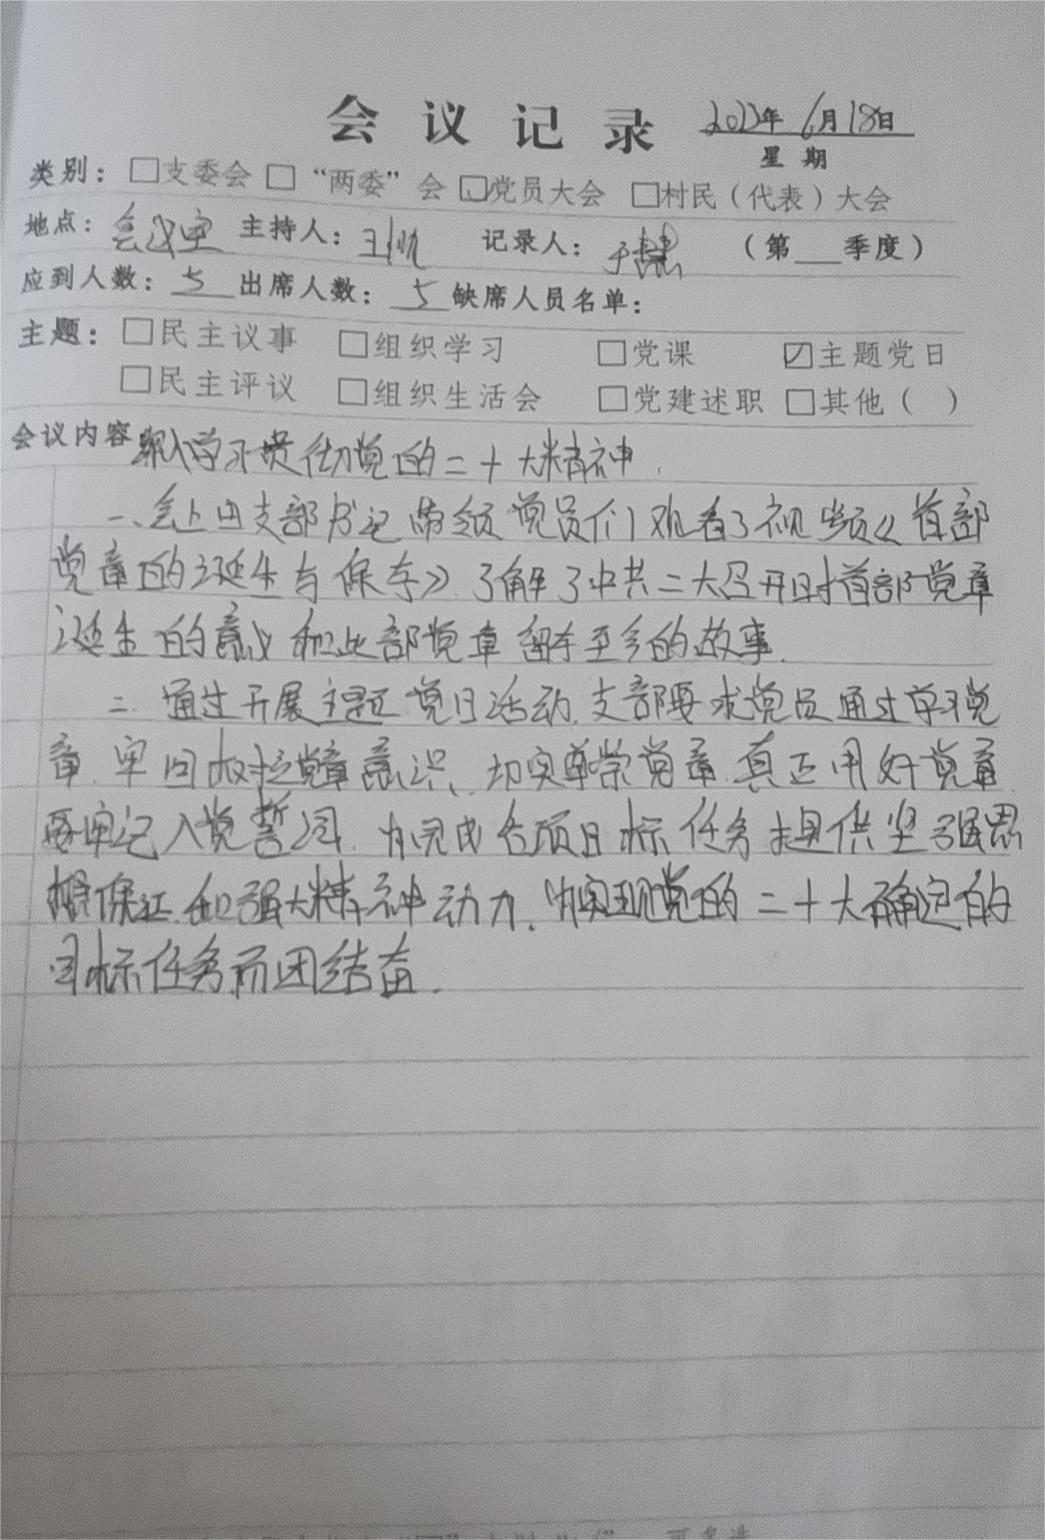 会议记录 2022年6月18日
星期
类别：□支委会 □“两委”会 ☑党员大会 □村民（代表）大会
地点：会议室 主持人：王帆 记录人：于 （第___季度）
应到人数：5 出席人数：5 缺席人员名单：
主题：□民主议事 □组织学习 □党课 ☑主题党日
□民主评议 □组织生活会 □党建述职 □其他（ ）
会议内容 深入学习贯彻党的二十大精神.
一、会上由支部书记带领党员们观看了视频《首部
党章的诞生与保存》.了解了中共二大召开时首部党章
诞生的意义和此部党章留存至今的故事.
二. 通过开展主题党日活动.支部要求党员通过学习党
章.牢固树立党章意识、切实尊崇党章.真正用好党章.
要牢记入党誓词.为完成各项目标任务提供坚强思
想保证和强大精神动力.为实现党的二十大确定的
目标任务而团结奋.